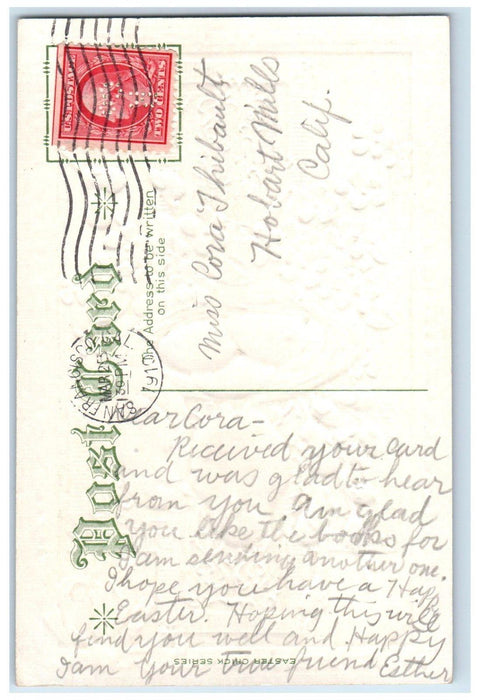 UNITED STATES
TWO CENTS
Post Card
The Address to be written
on this side
SAN FRANCISCO, CAL.
MAR 25
1910
Miss Cora Thibault
Hobart Mills
Calif.
Dear Cora –
Received your card
and was glad to hear
from you. Am glad
you like the books for
I am sending another one.
I hope you have a Happy
Easter. Hoping this will
find you well and Happy
I am your true friend Esther
EASTER CHICK SERIES